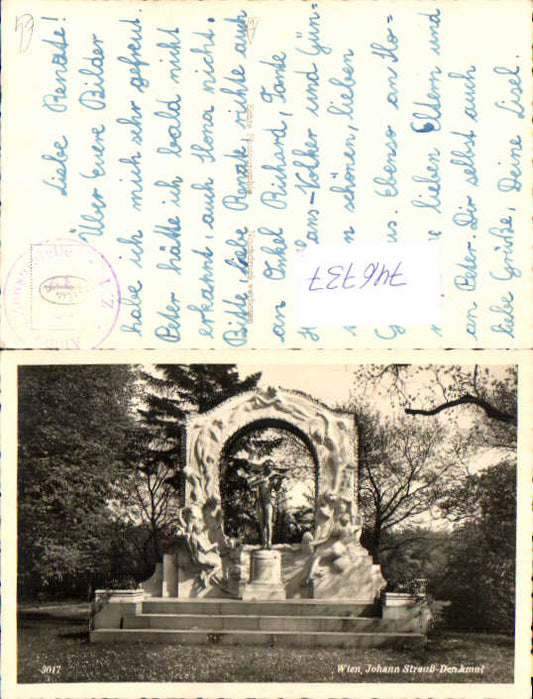 Liebe Renate!
Über Euere Bilder
habe ich mich sehr gefreut.
Peter hätte ich bald nicht
erkannt, auch Ilona nicht.
Bitte, liebe Renate, richte auch
an Onkel Richard, Tante
Hans-Volker und Gün-
schönen, lieben
Ebenso an Ilo-
lieben Eltern und
an Peter. Dir selbst auch
liebe Grüße, Deine Lisl.
746737
3017
Wien, Johann Strauß-Denkmal